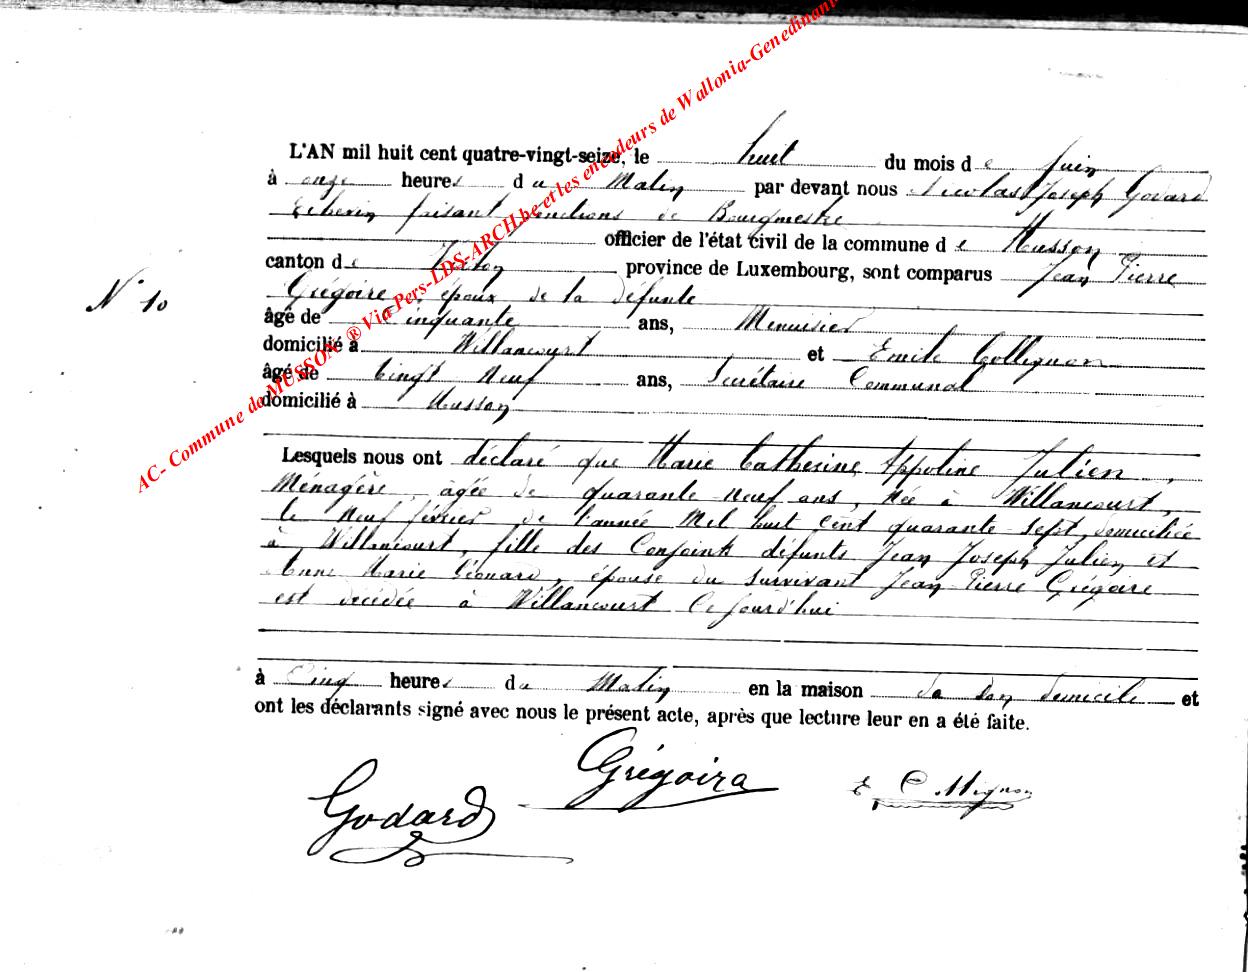 AC- Commune de MUSSON ® Via Pers-LDS-ARCH.be et les encodeurs de Wallonia-Genedinant
L'AN mil huit cent quatre-vingt-seize, le huit du mois de Juin
à onze heures du Matin par devant nous Nicolas Joseph Godard
Echevin faisant fonctions de Bourgmestre
officier de l'état civil de la commune de Musson
canton de Virton province de Luxembourg, sont comparus Jean Pierre
N° 10
Grégoire, époux de la défunte
âgé de Cinquante ans, Menuisier
domicilié à Willancourt et Emile Collignon
âgé de Vingt Neuf ans, Secrétaire Communal
domicilié à Musson
Lesquels nous ont déclaré que Marie Catherine Appoline Julien,
Ménagère, âgée de quarante neuf ans, Née à Willancourt,
le Neuf février de l'année Mil huit cent quarante sept, domiciliée
à Willancourt, fille des Conjoints défunts Jean Joseph Julien et
Anne Marie Léonard, épouse du survivant Jean Pierre Grégoire
est décédée à Willancourt Cejourd'hui
à Cinq heures du Matin en la maison de son domicile et
ont les déclarants signé avec nous le présent acte, après que lecture leur en a été faite.
Grégoire
E. Collignon
Godard